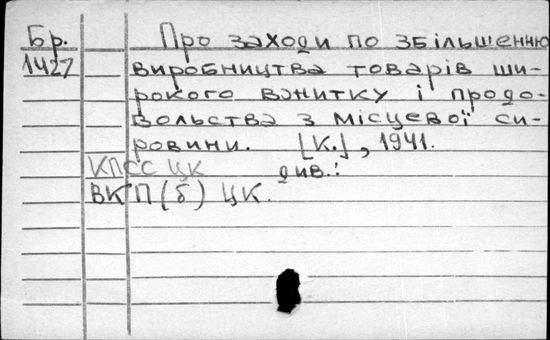 Бр. Про заходи по збільшенню
1427 виробництва товарів ши-
рокого вжитку і продо-
вольства з місцевої си-
ровини. [К.], 1941.
КПСС ЦК див.:
ВКП(б) ЦК.